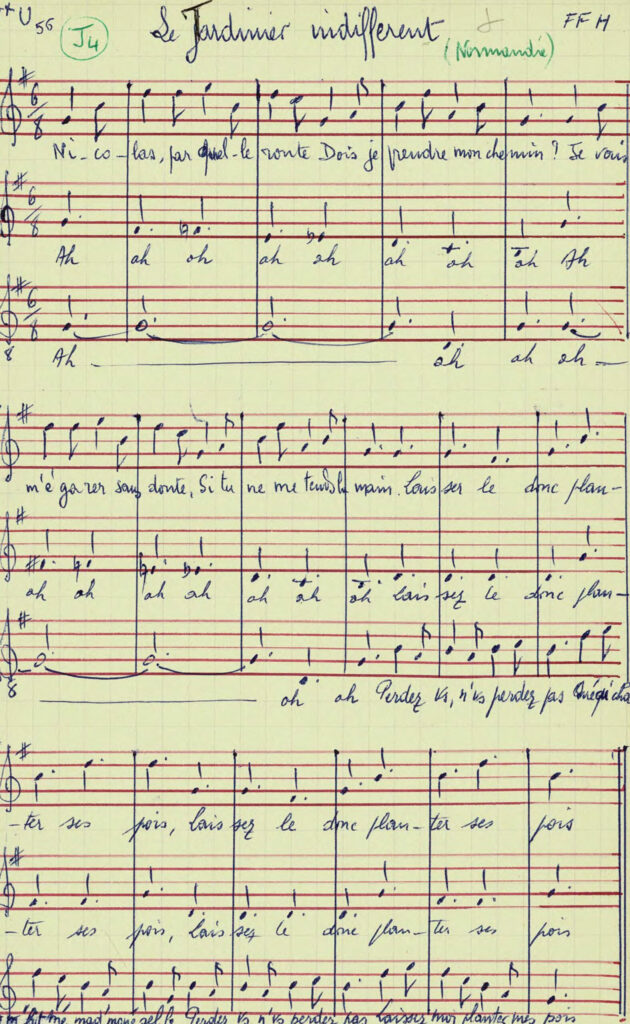 U 56 J4 Le Jardinier indifférent FFH
(Normandie)
6/8
Ni-co-las, par quel-le route Dois je prendre mon chemin ? Je vais
6/8
Ah ah oh ah ah ah oh oh Ah
6/8
8
Ah oh ah oh
m'é ga rer sans doute, Si tu ne me tends la main. Lais ser le donc plan-
oh oh oh ah oh oh oh lais sez le donc plan-
8
oh oh Perdez vs, n'vs perdez pas
-ter ses pois, lais sez le donc plan-ter ses pois
-ter ses pois, lais sez le donc plan-ter ses pois
mad'moi sel le Perdez vs n'vs perdez pas Laissez moi planter mes pois